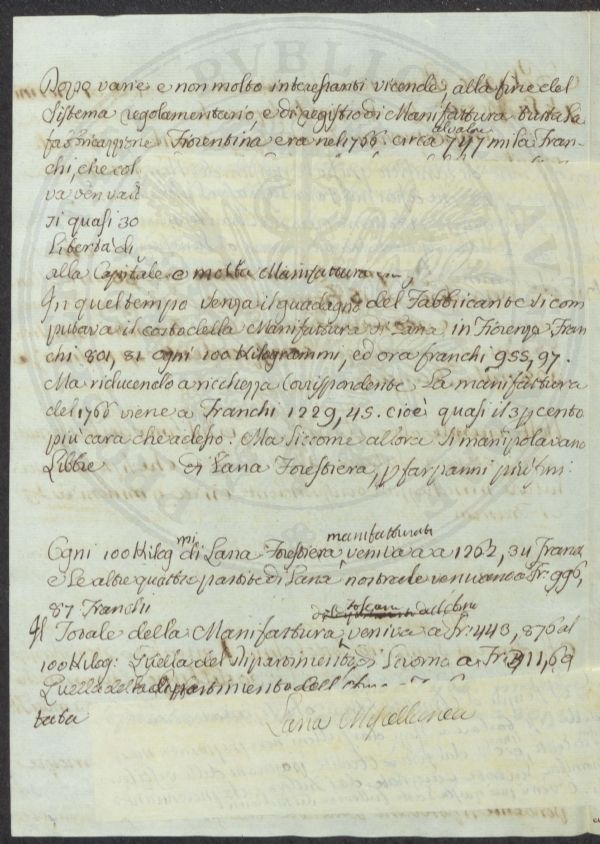 Dopo varie e non molto interessanti vicende, alla fine del
Sistema regolamentario, e di registro di Manifattura tutta la
fabbricazione Fiorentina era nel 1766. circa 747 mila Fran-
chi, che col
va
si quasi 30
Libertà di
alla Capitale e molta Manifattura
In quel tempo senza il guadagno del Fabbricante si com
putava il costo della Manifattura di Lana in Firenze Fran
chi 801, 81 ogni 100 Kilogrammi, ed ora franchi 955, 97.
Ma riducendo a ricchezza Corrispondente La manifattura
del 1766 viene a Franchi 1229, 45. cioè quasi il 3 p cento
più cara che adesso: Ma siccome allora si manipolavano
Libbre di Lana Forestiera, p far panni più fini:
manifatturati
Ogni 100 Kilogmi di Lana Forestiera veniva a a 1262, 34 Franchi
e Le altre quattro partite di Lana nostrale venivano a Fr. 996,
87 Franchi
Il Totale della Manifattura veniva a Fr. 443, 876 al
100 Kilog: Quella del dipartimento di
Quella del dipartimento dell
tata
Lana Miscellanea